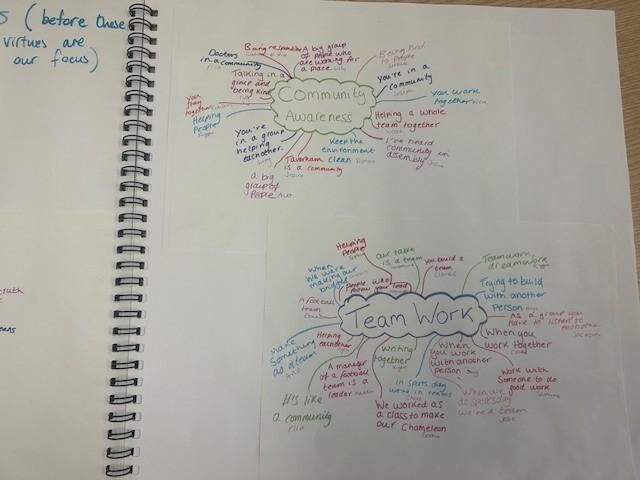 (before these
virtues are
our focus)
Doctors
in a community
Being responsible
A big group
of people who
are working for
a place
Being kind
to people
Talking in a
group and
being kind
You're in a
community
You
stay
together
Community
Awareness
You work
together
Helping
People
Helping a whole
team together
You're
in a group
helping
eachother.
Keep the
environment
clean
I've heard
community in
assembly
Taverham
is a community
a big
group of
People
Helping
People
our table
is a team
you build a
team
Teamwork
dreamwork
When
We were
making our
bridges
People who
follow your lead
Trying to build
with another
person
A football
team
Team Work
As a group you
have to listen to
When you
work together
make
Something
as a team
Helping
eachother
Writing
together
When
you work
with another
person
A manager
of a football
team is a
leader
in sports day
we're in teams
Work with
Someone to do
good work
It's like
a community
Ella
We worked as
a class to make
our Chameleon
When we
do sportsday
we're a team